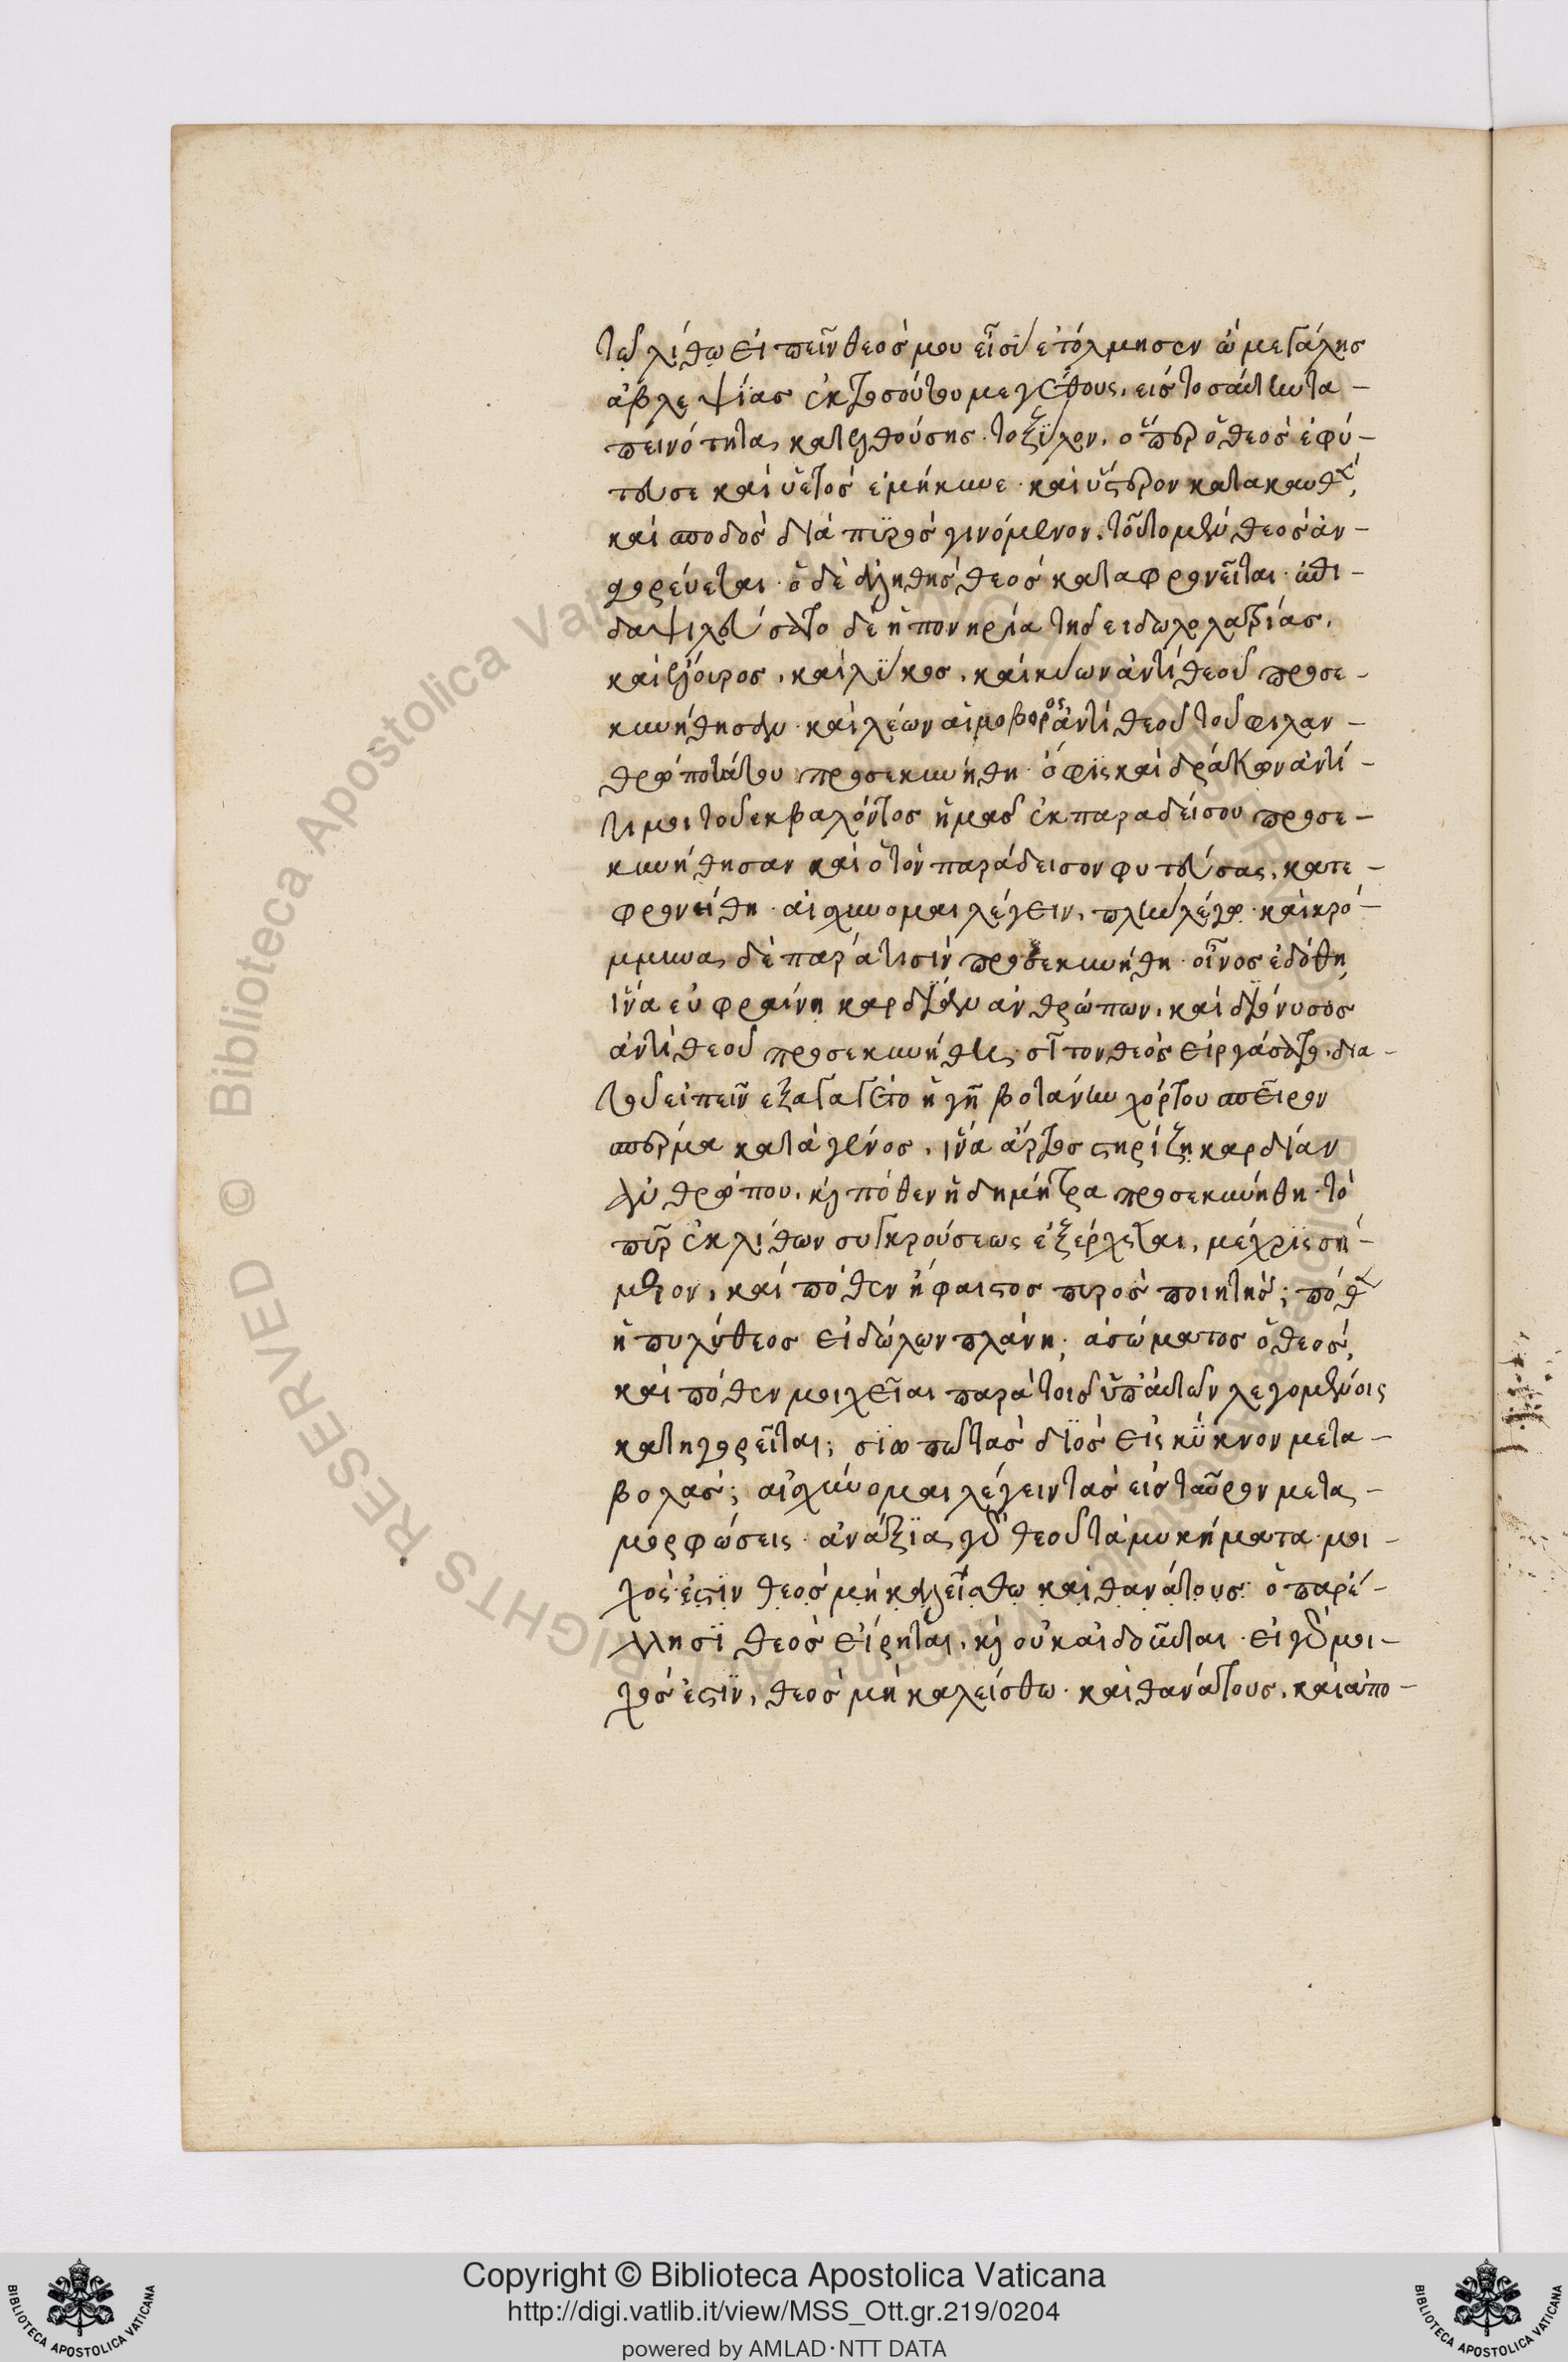 τῷ λίθῳ εἰπεῖν θεός μου εἶ σὺ ἐτόλμησεν ὢ μεγάλης
ἀβλεψίας ἐκ τοσούτου μεγέθους, εἰς τοσαύτην τα-
πεινότητα κατελθούσης. τὸ ξύλον, ὅπερ ὁ θεὸς ἐφύ-
τευσε καὶ ὑετὸς ἐμήκυνε. καὶ ὕστερον κατακαυθὲν,
καὶ σποδὸς διὰ πυρὸς γινόμενον, τοῦτο μὲν θεὸς ἀν-
γορεύεται. ὁ δὲ ἀληθὴς θεὸς καταφρονεῖται. ἐπε-
δαψιλεύσατο δὲ ἡ πονηρία τῆς εἰδωλολατρίας,
καὶ αἴλουρος, καὶ λύκος, καὶ κύων ἀντὶ θεοῦ προσε-
κυνήθησαν. καὶ λέων αἱμοβόρος ἀντὶ θεοῦ τοῦ φιλαν-
θρωποτάτου προσεκυνήθη. ὄφις καὶ δράκων ἀντί-
τιμοι τοῦ ἐκβαλόντος ἡμᾶς ἐκ παραδείσου προσε-
κυνήθησαν καὶ ὁ τὸν παράδεισον φυτεύσας, κατε-
φρονείθη. αἰσχύνομαι λέγειν, πλὴν λέγω. καὶ κρό-
μμυα δὲ παρά τισιν προσεκυνήθη. οἶνος ἐδόθη
ἵνα εὐφραίνη καρδίαν ἀνθρώπων, καὶ διόνυσος
ἀντὶ θεοῦ προσεκυνήθη. σῖτον θεὸς εἰργάσατο, δια
τοῦ εἰπεῖν ἐξαγαγέτο ἡ γῆ βοτάνην χόρτου σπεῖρον
σπέρμα κατὰ γένος, ἵνα ἄρτος στηρίζῃ καρδίαν
ἀνθρώπου, καὶ πόθεν ἡ δημήτρα προσεκυνήθη. τὸ
πῦρ ἐκ λίθων συγκρούσεως ἐξέρχεται, μέχρις σή-
μερον, καὶ πόθεν ἥφαιστος πυρὸς ποιητής; πόθεν
ἡ πολύθεος εἰδώλων πλάνη; ἀσώματος ὁ θεός,
καὶ πόθεν μοιχεῖαι παρὰ τοῖς ὑπ' αὐτῶν λεγομένοις
κατηγορεῖται; σιωπῶ τὰς διὸς εἰς κύκνον μετα-
βολάς; αἰσχύνομαι λέγειν τὰς εἰς ταῦρον μετα-
μορφώσεις. ἀνάξια γὰρ θεοῦ τὰ μυκήματα. μοι-
χός ἐστιν θεὸς μὴ καλείσθω καὶ θανάτους. ὁ παρ' ἕ-
λλησι θεὸς εἴρηται, καὶ οὐκ αἰδοῦνται. εἰ γὰρ μοι-
χός ἐστιν, θεὸς μὴ καλείσθω. καὶ θανάτους, καὶ ἀπο-
Copyright © Biblioteca Apostolica Vaticana
http://digi.vatlib.it/view/MSS_Ott.gr.219/0204
powered by AMLAD·NTT DATA